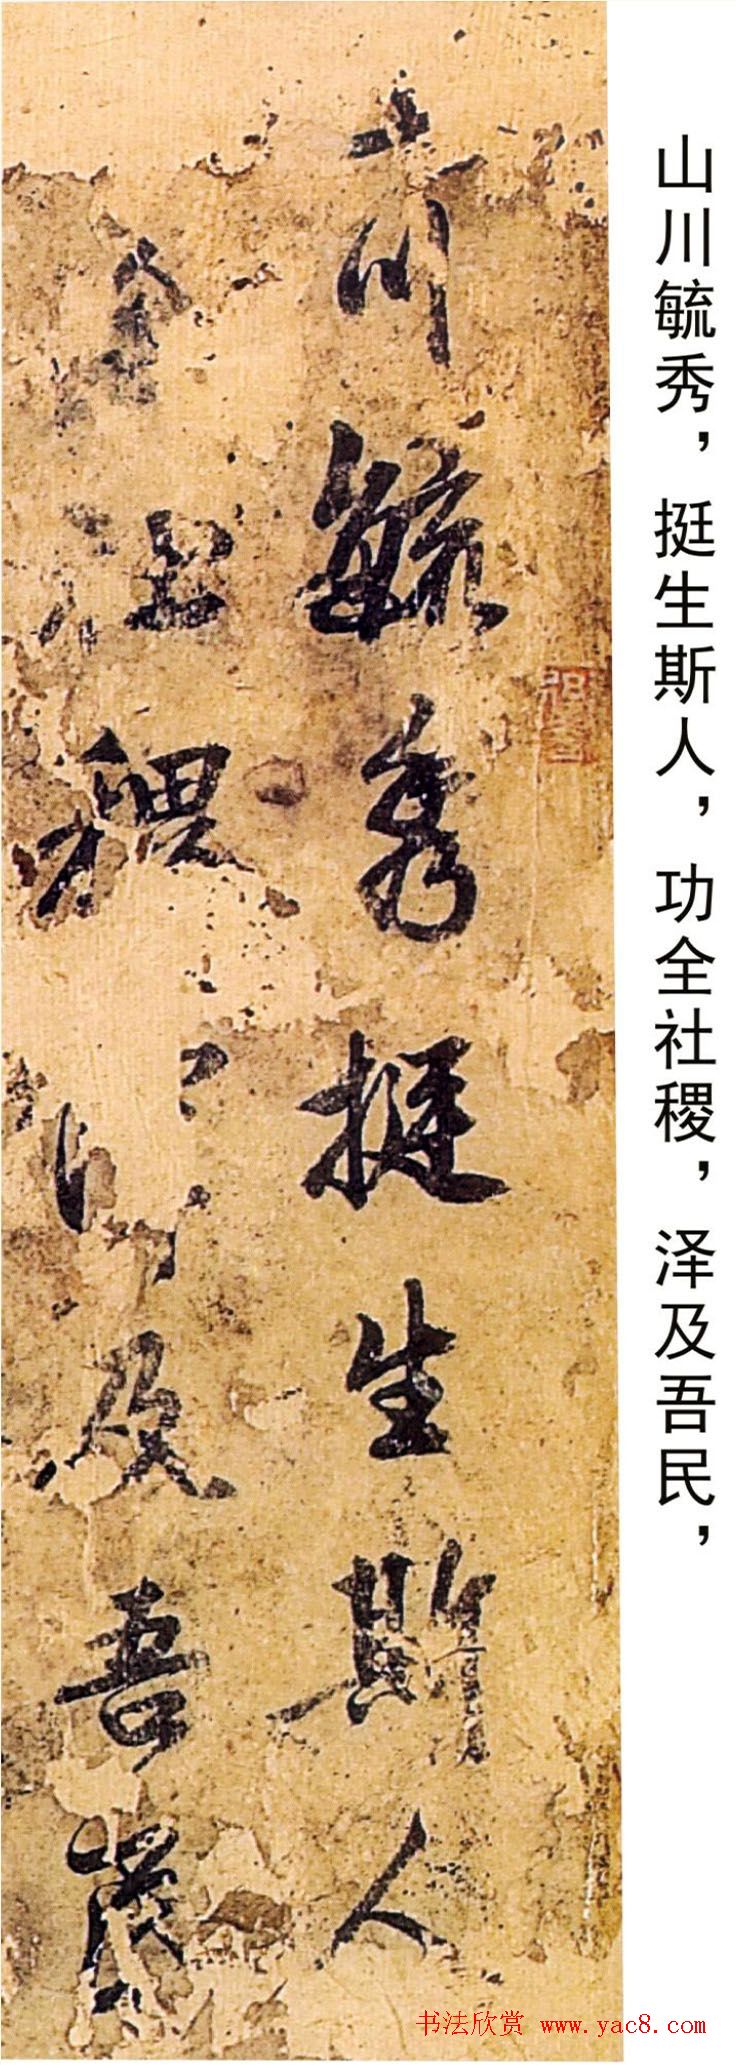 山川毓秀，挺生斯人，功全社稷，泽及吾民，
川毓秀挺生斯人
全社稷
及吾
书法欣赏 www.yac8.com